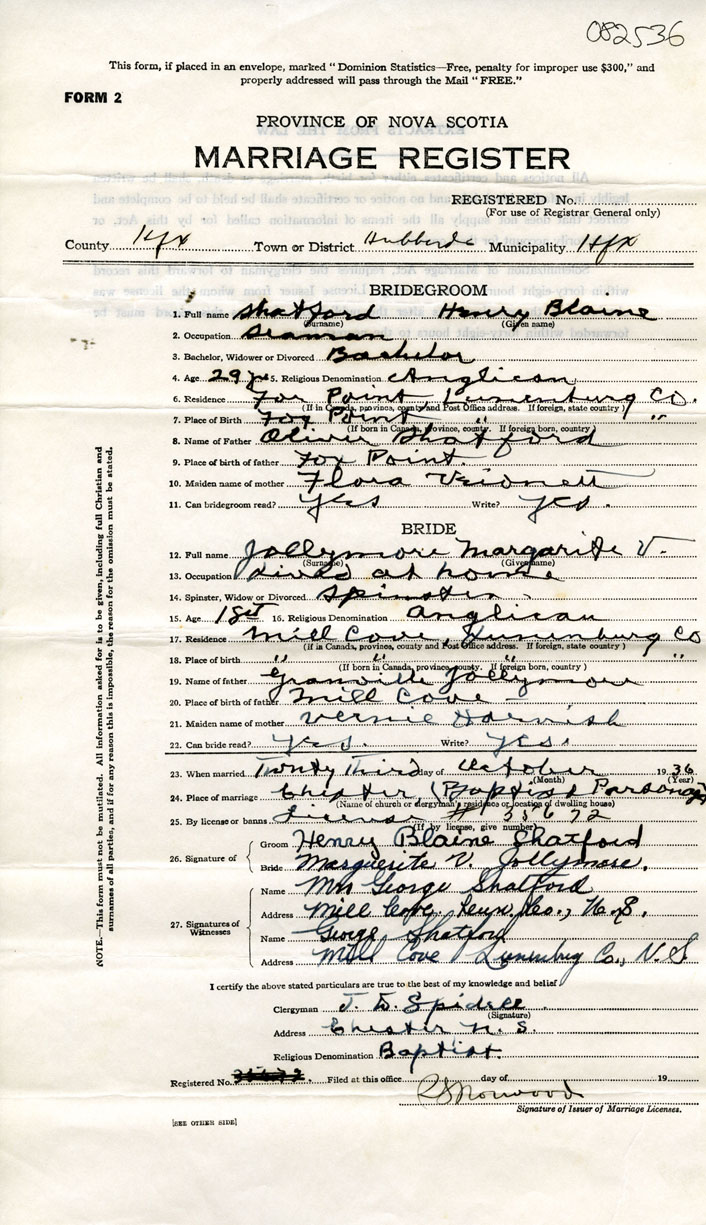 082536
This form, if placed in an envelope, marked "Dominion Statistics—Free, penalty for improper use $300," and
properly addressed will pass through the Mail "FREE."
FORM 2
PROVINCE OF NOVA SCOTIA
MARRIAGE REGISTER
REGISTERED No.
(For use of Registrar General only)
County Hfx Town or District Hubbards Municipality Hfx
BRIDEGROOM
1. Full name Shatford Henry Blaine
(Surname) (Given name)
2. Occupation Seaman
3. Bachelor, Widower or Divorced Bachelor
4. Age 29 yrs 5. Religious Denomination Anglican
6. Residence Fox Point, Lunenburg Co.
(If in Canada, province, county and Post Office address. If foreign, state country)
7. Place of Birth Fox Point " "
(If born in Canada, province, county. If foreign born, country)
8. Name of Father Oliver Shatford
9. Place of birth of father Fox Point
10. Maiden name of mother Flora
11. Can bridegroom read? Yes Write? Yes.
BRIDE
12. Full name Jollymore Margarite V.
(Surname) (Given name)
13. Occupation lived at home
14. Spinster, Widow or Divorced Spinster
15. Age 16. Religious Denomination Anglican
17. Residence Mill Cove, Lunenburg Co
(If in Canada, province, county and Post Office address. If foreign, state country)
18. Place of birth " " " "
(If born in Canada, province, county. If foreign born, country)
19. Name of father Granville Jollymore
20. Place of birth of father Mill Cove
21. Maiden name of mother Vernie Harnish
22. Can bride read? Yes. Write? Yes.
23. When married Twenty Third day of October 1936
(Month) (Year)
24. Place of marriage Chester, (Baptist Parsonage
(Name of church or clergyman's residence or location of dwelling house)
25. By license or banns License #
(If by license, give number)
26. Signature of
Groom Henry Blaine Shatford
Bride Marguerite V. Jollymore.
27. Signatures of Witnesses
Name Mrs George Shatford
Address Mill Cove, Lun. Co., N.S.
Name George Shatford
Address Mill Cove Lunenburg Co., N.S
I certify the above stated particulars are true to the best of my knowledge and belief
Clergyman J. D. Spidell
(Signature)
Address Chester N. S.
Religious Denomination Baptist.
Registered No. Filed at this office day of 19
Norwood
Signature of Issuer of Marriage Licenses.
[SEE OTHER SIDE]
NOTE.—This form must not be mutilated. All information asked for is to be given, including full Christian and
surnames of all parties, and if for any reason this is impossible, the reason for the omission must be stated.